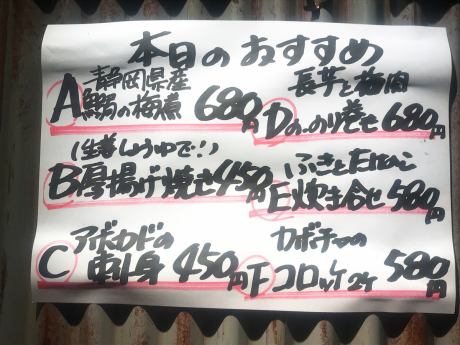 本日のおすすめ
静岡県産
A 鰯の梅煮 680円
(生姜しょうゆで!)
B 厚揚げ焼き 450円
アボカドの
C 刺身 450円
長芋と梅肉
Dの.のり巻き 680円
ふきとたけのこ
E 炊き合せ 580円
カボチャの
F コロッケ2ケ 580円